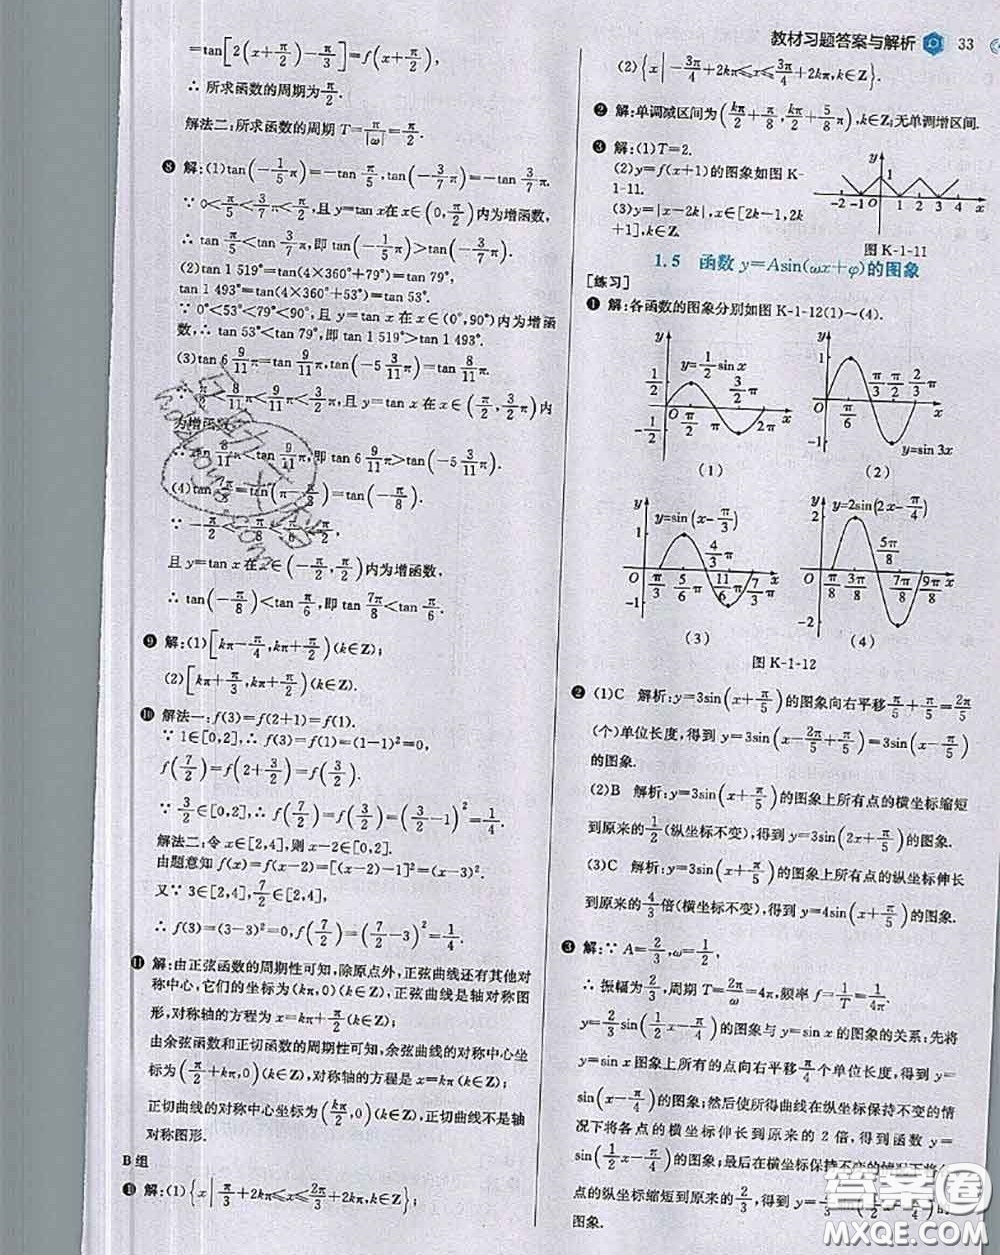 教材习题答案与解析 33
=tan[2(x+π/2)-π/3]=f(x+π/2),
∴ 所求函数的周期为π/2.
解法二:所求函数的周期 T=π/|ω|=π/2.
8 解:(1)tan(-1/5π)=-tan π/5,tan(-3/7π)=-tan 3/7π.
∵ 0<π/5<3/7π<π/2,且 y=tan x在 x∈(0,π/2)内为增函数,
∴ tan π/5<tan 3/7π,即 tan(-1/5π)>tan(-3/7π).
(2)tan 1 519°=tan(4×360°+79°)=tan 79°,
tan 1 493°=tan(4×360°+53°)=tan 53°.
∵ 0°<53°<79°<90°,且 y=tan x 在 x∈(0°,90°)内为增函
数,∴ tan 53°<tan 79°,即 tan 1 519°>tan 1 493°.
(3)tan 6 9/11π=tan 9/11π,tan(-5 3/11π)=tan 8/11π.
π/2<8/11π<9/11π<3/2π,且 y=tan x 在 x∈(π/2,3/2π)内
为增函数,
∴ tan 8/11π<tan 9/11π,即 tan 6 9/11π>tan(-5 3/11π).
(4)tan 7π/8=tan(π-π/8)=tan(-π/8).
∵ -π/2<-π/8<π/6<π/2,
且 y=tan x在 x∈(-π/2,π/2)内为增函数,
∴ tan(-π/8)<tan π/6,即 tan 7π/8<tan π/6.
9 解:(1)[kπ-π/4,kπ+π/2)(k∈Z).
(2)[kπ+π/3,kπ+π/2)(k∈Z).
10 解法一:f(3)=f(2+1)=f(1).
∵ 1∈[0,2],∴ f(3)=f(1)=(1-1)²=0,
f(7/2)=f(2+3/2)=f(3/2).
∵ 3/2∈[0,2],∴ f(7/2)=f(3/2)=(3/2-1)²=1/4.
解法二:令 x∈[2,4],则 x-2∈[0,2].
由题意知 f(x)=f(x-2)=[(x-2)-1]²=(x-3)².
又∵ 3∈[2,4],7/2∈[2,4],
∴ f(3)=(3-3)²=0,f(7/2)=(7/2-3)²=1/4.
11 解:由正弦函数的周期性可知,除原点外,正弦曲线还有其他对
称中心,它们的坐标为(kπ,0)(k∈Z),正弦曲线是轴对称图
形,对称轴的方程为 x=kπ+π/2(k∈Z);
由余弦函数和正切函数的周期性可知,余弦曲线的对称中心坐
标为(π/2+kπ,0)(k∈Z),对称轴的方程是 x=kπ(k∈Z);
正切曲线的对称中心坐标为(kπ/2,0)(k∈Z),正切曲线不是轴
对称图形.
B 组
1 解:(1){x|π/3+2kπ≤x≤2π/3+2kπ,k∈Z};
(2){x|-3π/4+2kπ≤x≤3π/4+2kπ,k∈Z}.
2 解:单调减区间为(kπ/2+π/8,kπ/2+5/8π),k∈Z;无单调增区间.
3 解:(1)T=2.
(2)y=f(x+1)的图象如图 K-
1-11.
(3)y=|x-2k|,x∈[2k-1,2k
+1],k∈Z.
y 1 -2 -1 O 1 2 3 4 x
图 K-1-11
1.5 函数 y=Asin(ωx+φ)的图象
[练习]
1 解:各函数的图象分别如图 K-1-12(1)~(4).
y 1/2 y=1/2 sin x 3/2π O π/2 π 2π x -1/2
(1)
y 1 π/3 π/2 2/3π O π/6 x -1 y=sin 3x
(2)
y 1 y=sin(x-π/3) 4/3π O π/3 5/6π 11/6π 7/3π x -1
(3)
y 2 y=2sin(2x-π/4) 5π/8 O π/8 3π/8 7π/8 9π/8 x -2
(4)
图 K-1-12
2 (1)C 解析:y=3sin(x+π/5)的图象向右平移π/5+π/5=2π/5
(个)单位长度,得到 y=3sin(x-2π/5+π/5)=3sin(x-π/5)
的图象.
(2)B 解析:y=3sin(x+π/5)的图象上所有点的横坐标缩短
到原来的1/2(纵坐标不变),得到 y=3sin(2x+π/5)的图象.
(3)C 解析:y=3sin(x+π/5)的图象上所有点的纵坐标伸长
到原来的4/3倍(横坐标不变),得到 y=4sin(x+π/5)的图象.
3 解:∵ A=2/3,ω=1/2,
∴ 振幅为2/3,周期 T=2π/ω=4π,频率 f=1/T=1/4π.
y=2/3sin(1/2x-π/4)的图象与 y=sin x 的图象的关系:先将
y=sin x图象上所有的点向右平移π/4个单位长度,得到 y=
sin(x-π/4)的图象;然后使所得曲线在纵坐标保持不变的情
况下将各点的横坐标伸长到原来的 2 倍,得到函数 y=
sin(1/2x-π/4)的图象,最后在横坐标保持不变的情况下将各
点的纵坐标缩短到原来的2/3,得到 y=2/3sin(1/2x-π/4)的
图象.
答案圈
MXQE.COM